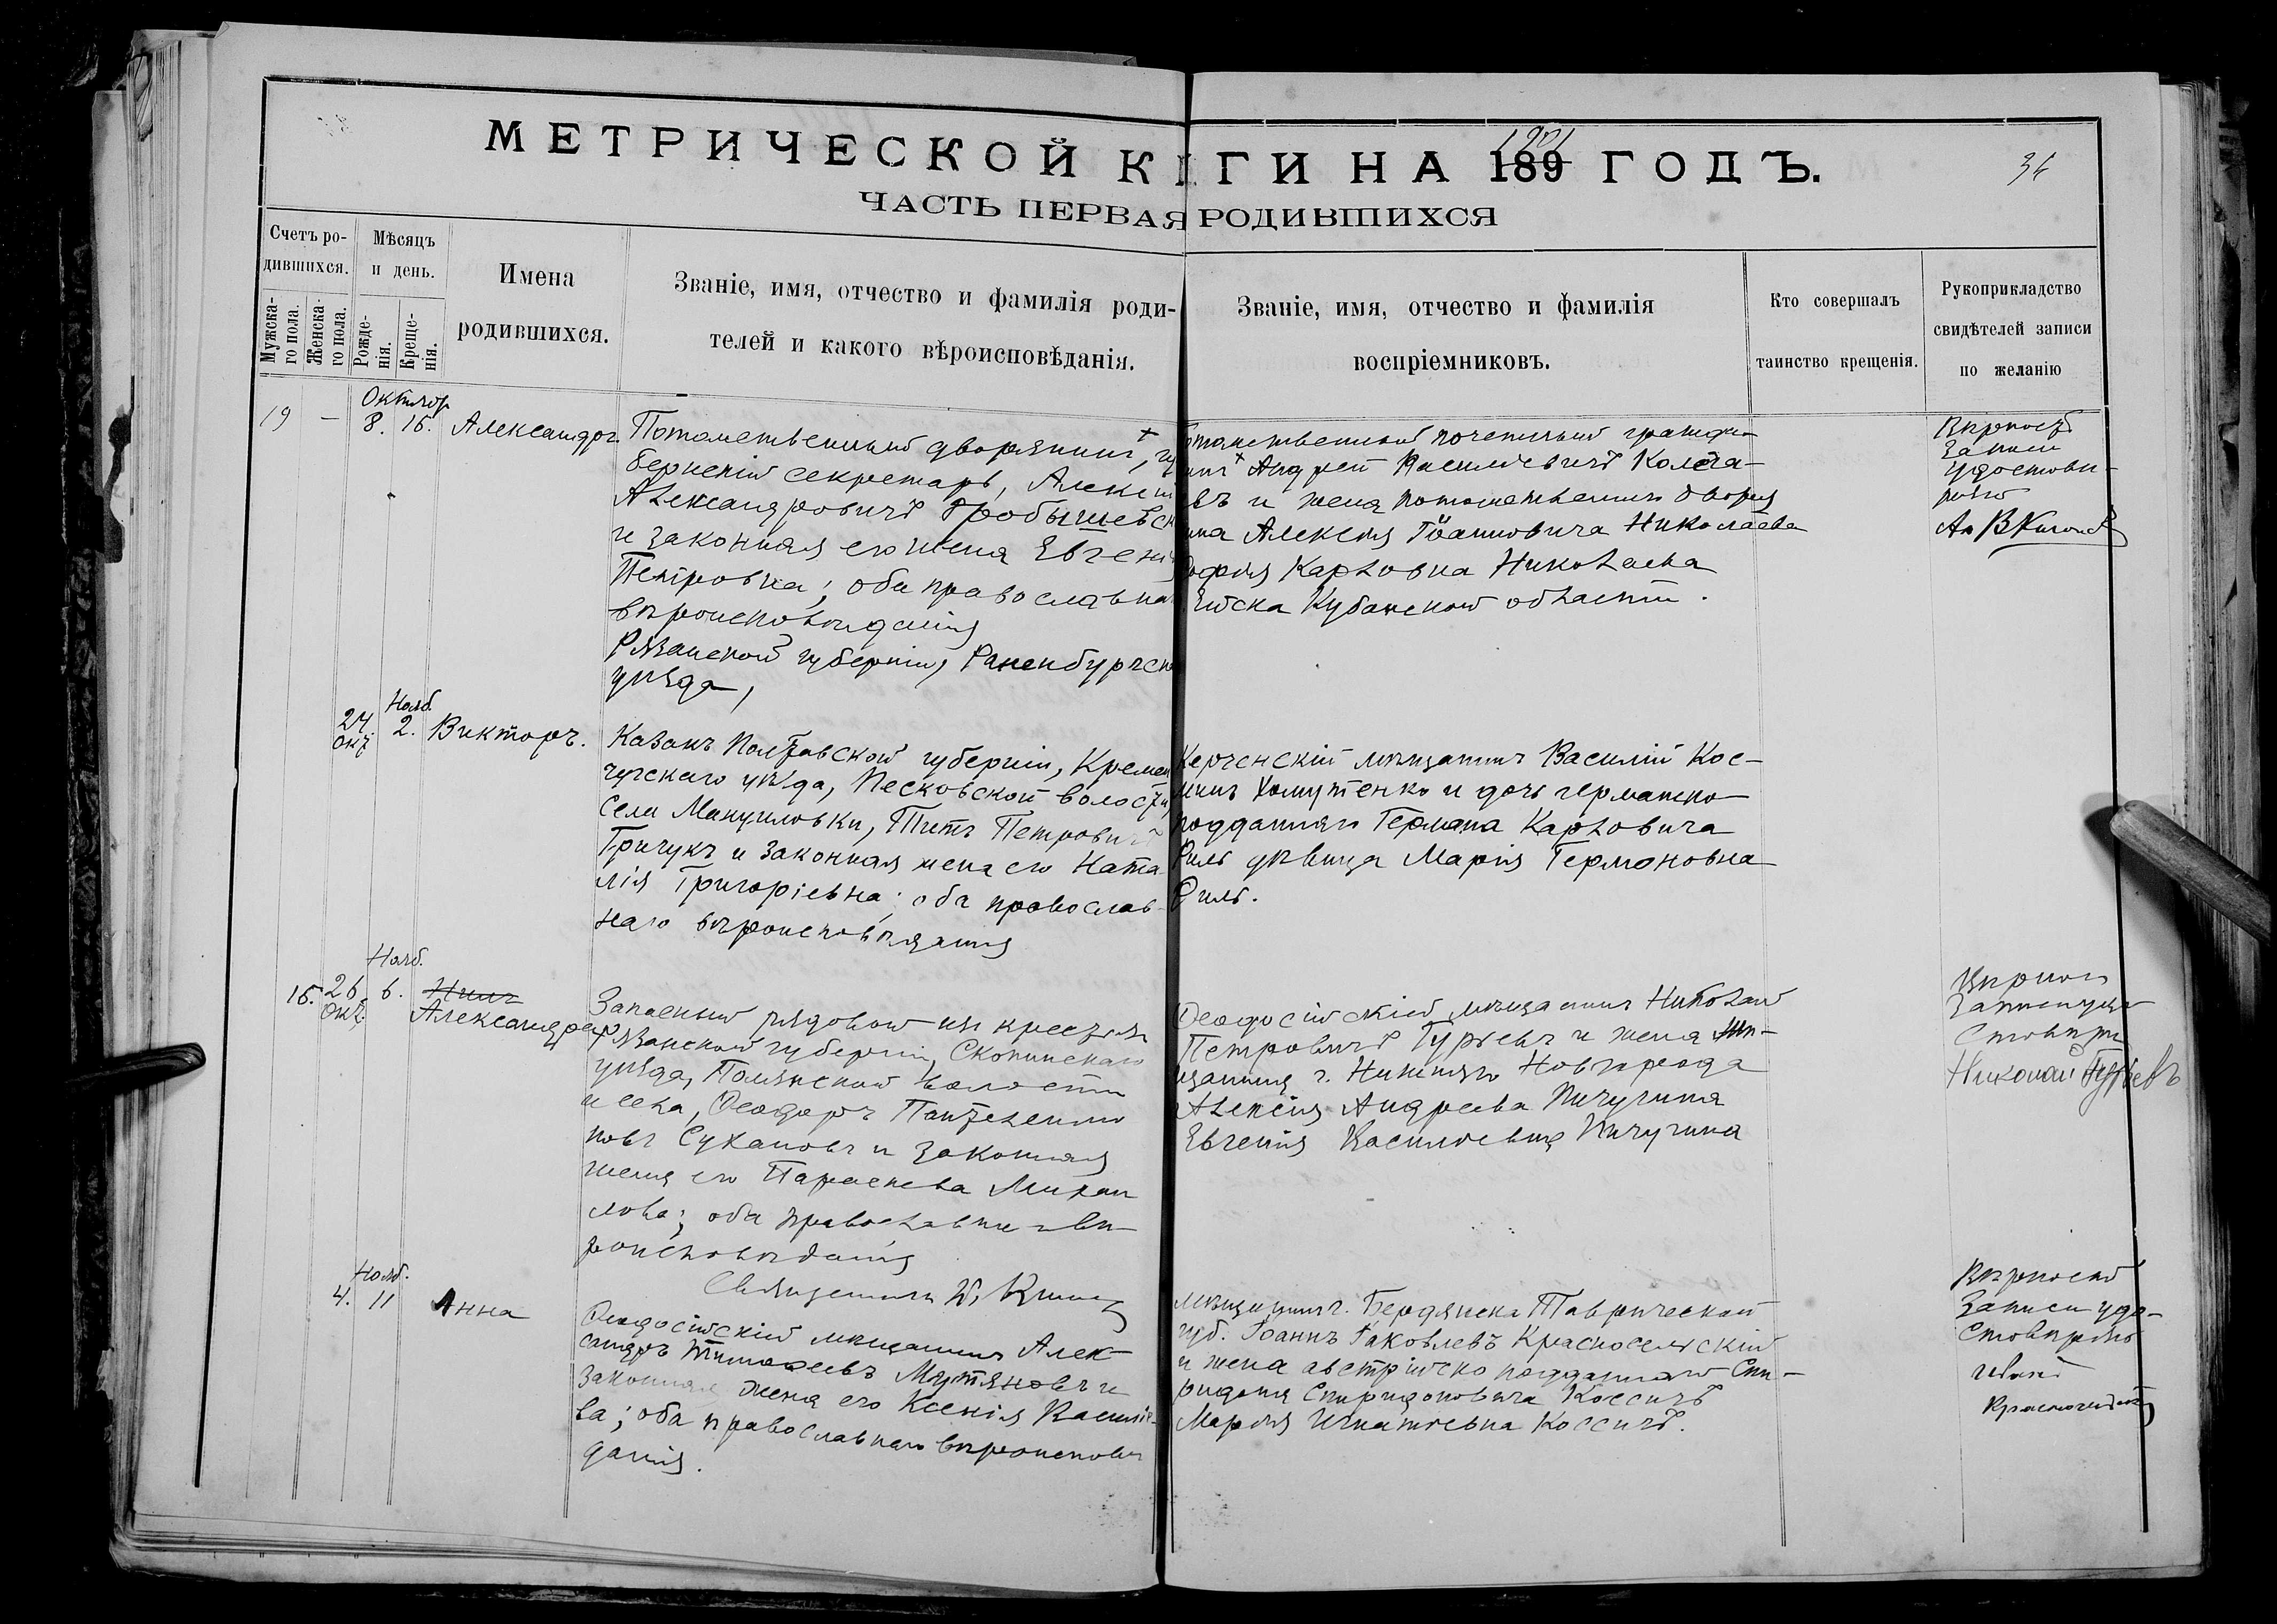 МЕТРИЧЕСКОЙ К ГИ НА 189 ГОДЪ.
1901
34
ЧАСТЬ ПЕРВАЯ РОДИВШИХСЯ
Счетъ ро-
дившихся.
Мужска-
го пола.
Женска-
го пола.
Мѣсяцъ
и день.
Рожде-
нія.
Креще-
нія.
Имена
родившихся.
Званіе, имя, отчество и фамилія роди-
телей и какого вѣроисповѣданія.
Званіе, имя, отчество и фамилія
воспріемниковъ.
Кто совершалъ
таинство крещенія.
Рукоприкладство
свидѣтелей записи
по желанію
Октябр
19 – 8. 15. Александръ.
Потомственный дворянинъ, гу
бернскій секретарь, Алексѣй
Александровичъ
и законная его жена Евгені
Петровна; оба православна
вѣроисповѣданія
Рязанской губерніи, Раненбургск
уѣзда,
отомственный почетный гражда-
нинъ Андрей Васильевичъ
въ и жена потомственнаго дворя
нина Алексѣя Іоанновича Николаева
Софія Карловна Николаева
Ейска Кубанской области.
Вѣрность
записи
удостовѣ-
ряю
Нояб.
24 2. Викторъ.
Окт
Казакъ Полтавской губерніи, Кремен
чугскаго уѣзда, Песковской волости,
села Мануиловки, Титъ Петровичъ
Гричукъ и законная жена его Ната
лія Григоріевна; оба православ-
наго вѣроисповѣданія
Керченскій мѣщанинъ Василій Кос-
минъ Хомутенко и дочь германско
подданнаго Германа Карловича
Риль дѣвица Марія Германовна
Риль.
Нояб.
15. 26 6. Нина
Окт. Александра
Запасный рядовой изъ крестьянъ
Рязанской губерніи, Скопинскаго
уѣзда, Полянской волости
и села, Ѳеодоръ Пантелеимо
новъ Сухановъ и законная
жена его Параскева Михаи
лова; оба православнаго вѣ-
роисповѣданія
Священникъ
Ѳеодосійскій мѣщанинъ Николай
Петровичъ Гурьевъ и жена мѣ-
щанина г. Нижняго Новгорода
Алексія Андреева Пичугина
Евгенія Васильевна Пичугина
Николай Гурьевъ
Нояб.
4. 11 Анна
Ѳеодосійскій мѣщанинъ Алек-
сандръ Тимоѳеевъ Мутяновъ и
законная жена его Ксенія Василіе-
ва; оба православнаго вѣроисповѣ
данія.
Мѣщанинъ г. Бердянска Таврической
губ. Іоаннъ Іаковлевъ Красносельскій
и жена австрійско подданнаго Спи-
ридона Спиридоновича Коссичъ
Марія Игнатьевна Коссичъ.
Вѣрность
записи удо-
стовѣряю